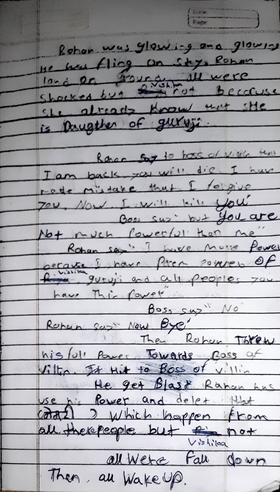 Rohan was glowing and glowing
He was fling on sky. Rohan
land on ground. All were
shocked but Vishika not because
she already know that SHe
is Daughter of guruji.
Rohan say to boss of villin that
I am back you will die I have
made mistake that I forgive
you, Now I will kill you"
Boss say" but you are
Not much powerful then me"
Rohan say" I have more Power
because I have power of
Vishika guruji and all people, you
have this power"
Boss say" No"
Rohan say" New Eye"
Then Rohan Threw
his full Power Towards Boss of
Villin. It Hit to Boss of villin
He get Blast Rohan has
use his Power and delet that
) Which happen from
all the people but not
Vishika
all were fall down
Then, all Wake up.